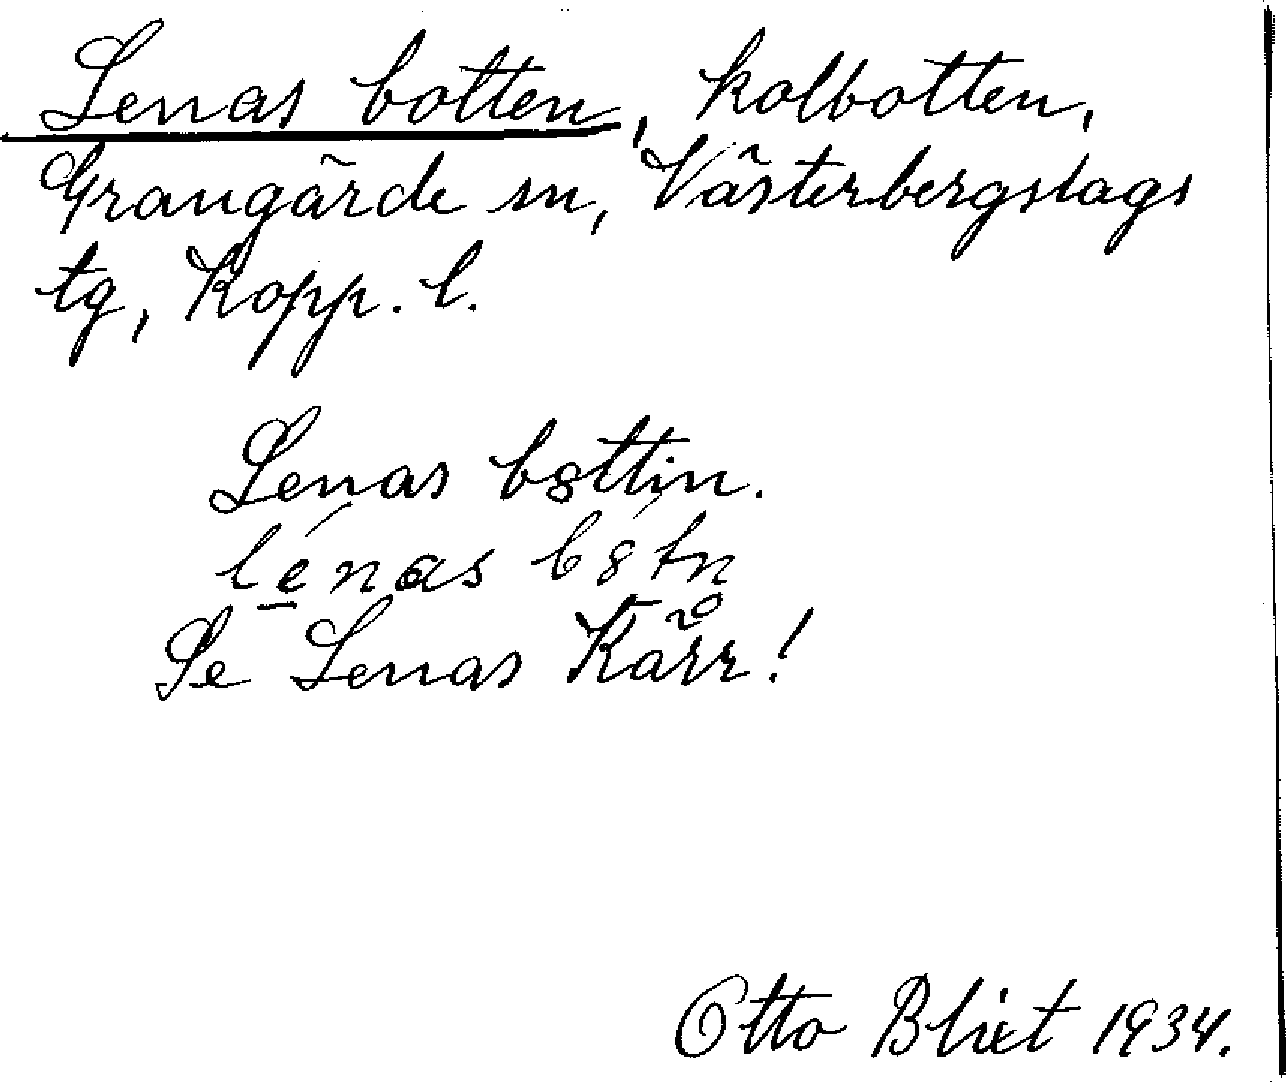 Lenas botten, kolbotten,
Grangärde sn, Västerbergslags
tg, Kopp. l.
Lenas bøttin.
Se Lenas Kärr!
Otto Blixt 1934.